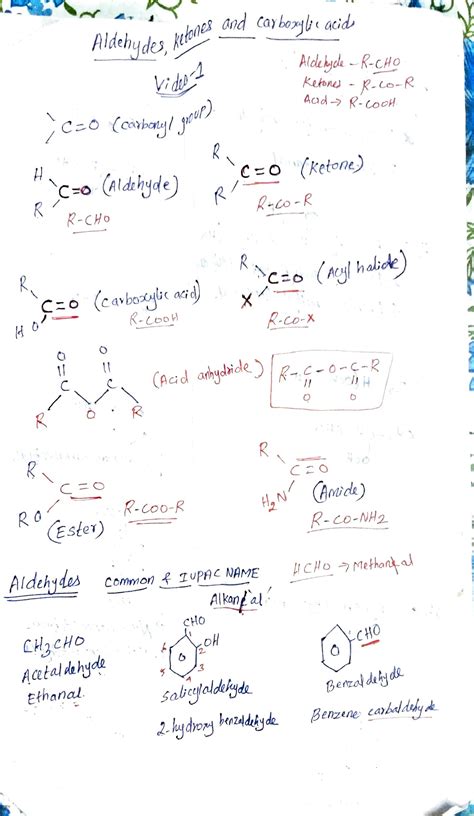 Aldehydes, Ketones and Carboxylic acids
Video-1
Aldehyde - R-CHO
Ketones - R-CO-R
Acid → R-COOH
C=O (carbonyl group)
H
C=O (Aldehyde)
R
R-CHO
R
C=O (Ketone)
R
R-CO-R
R
C=O (Carboxylic acid)
HO
R-COOH
R
C=O (Acyl halide)
X
R-CO-X
O O
C C
R O R
(Acid anhydride)
R-C-O-C-R
O O
R
C=O
RO
(Ester)
R-COO-R
R
C=O
H2N
(Amide)
R-CO-NH2
Aldehydes common & IUPAC NAME
Alkanal
HCHO → Methanal
CH3CHO
Acetaldehyde
Ethanal
CHO
OH
6 2
5 3
4
Salicylaldehyde
2-hydroxy benzaldehyde
CHO
Benzaldehyde
Benzene carbaldehyde